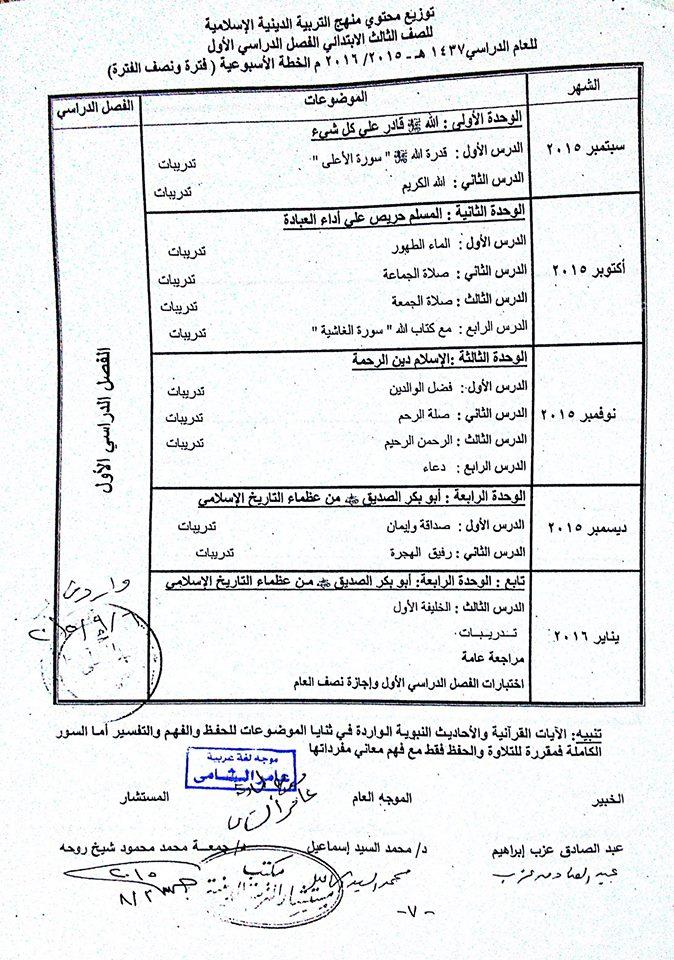 توزيع محتوي منهج التربية الدينية الإسلامية
للصف الثالث الابتدائي الفصل الدراسي الأول
للعام الدراسي ١٤٣٧ هـ - ٢٠١٥/ ٢٠١٦ م الخطة الأسبوعية ( فترة ونصف الفترة )
الشهر الموضوعات الفصل الدراسي
الوحدة الأولى : الله ﷻ قادر علي كل شيء
سبتمبر ٢٠١٥
الدرس الأول : قدرة الله ﷻ " سورة الأعلى " تدريبات
الدرس الثاني : الله الكريم تدريبات
الوحدة الثانية : المسلم حريص علي أداء العبادة
أكتوبر ٢٠١٥
الدرس الأول : الماء الطهور تدريبات
الدرس الثاني : صلاة الجماعة تدريبات
الدرس الثالث : صلاة الجمعة تدريبات
الدرس الرابع : مع كتاب الله " سورة الغاشية " تدريبات
الوحدة الثالثة :الإسلام دين الرحمة
نوفمبر ٢٠١٥
الدرس الأول : فضل الوالدين تدريبات
الدرس الثاني : صلة الرحم تدريبات
الدرس الثالث : الرحمن الرحيم تدريبات
الدرس الرابع : دعاء
الوحدة الرابعة : أبو بكر الصديق من عظماء التاريخ الإسلامي
ديسمبر ٢٠١٥
الدرس الأول : صداقة وإيمان تدريبات
الدرس الثاني : رفيق الهجرة تدريبات
تابع : الوحدة الرابعة: أبو بكر الصديق من عظماء التاريخ الإسلامي
يناير ٢٠١٦
الدرس الثالث : الخليفة الأول
تـدريـبـات
مراجعة عامة
اختبارات الفصل الدراسي الأول وإجازة نصف العام
الفصل الدراسي الأول
تنبيه: الآيات القرآنية والأحاديث النبوية الواردة في ثنايا الموضوعات للحفظ والفهم والتفسير أما السور
الكاملة فمقررة للتلاوة والحفظ فقط مع فهم معاني مفرداتها
موجه لغة عربية
عامر الشامى
الخبير الموجه العام المستشار
عبد الصادق عزب إبراهيم د/ محمد السيد إسماعيل د/ جمعة محمد محمود شيخ روحه
عبد الصادق عزب
محمد السيد
مكتب
٢٠١٥
-٧-